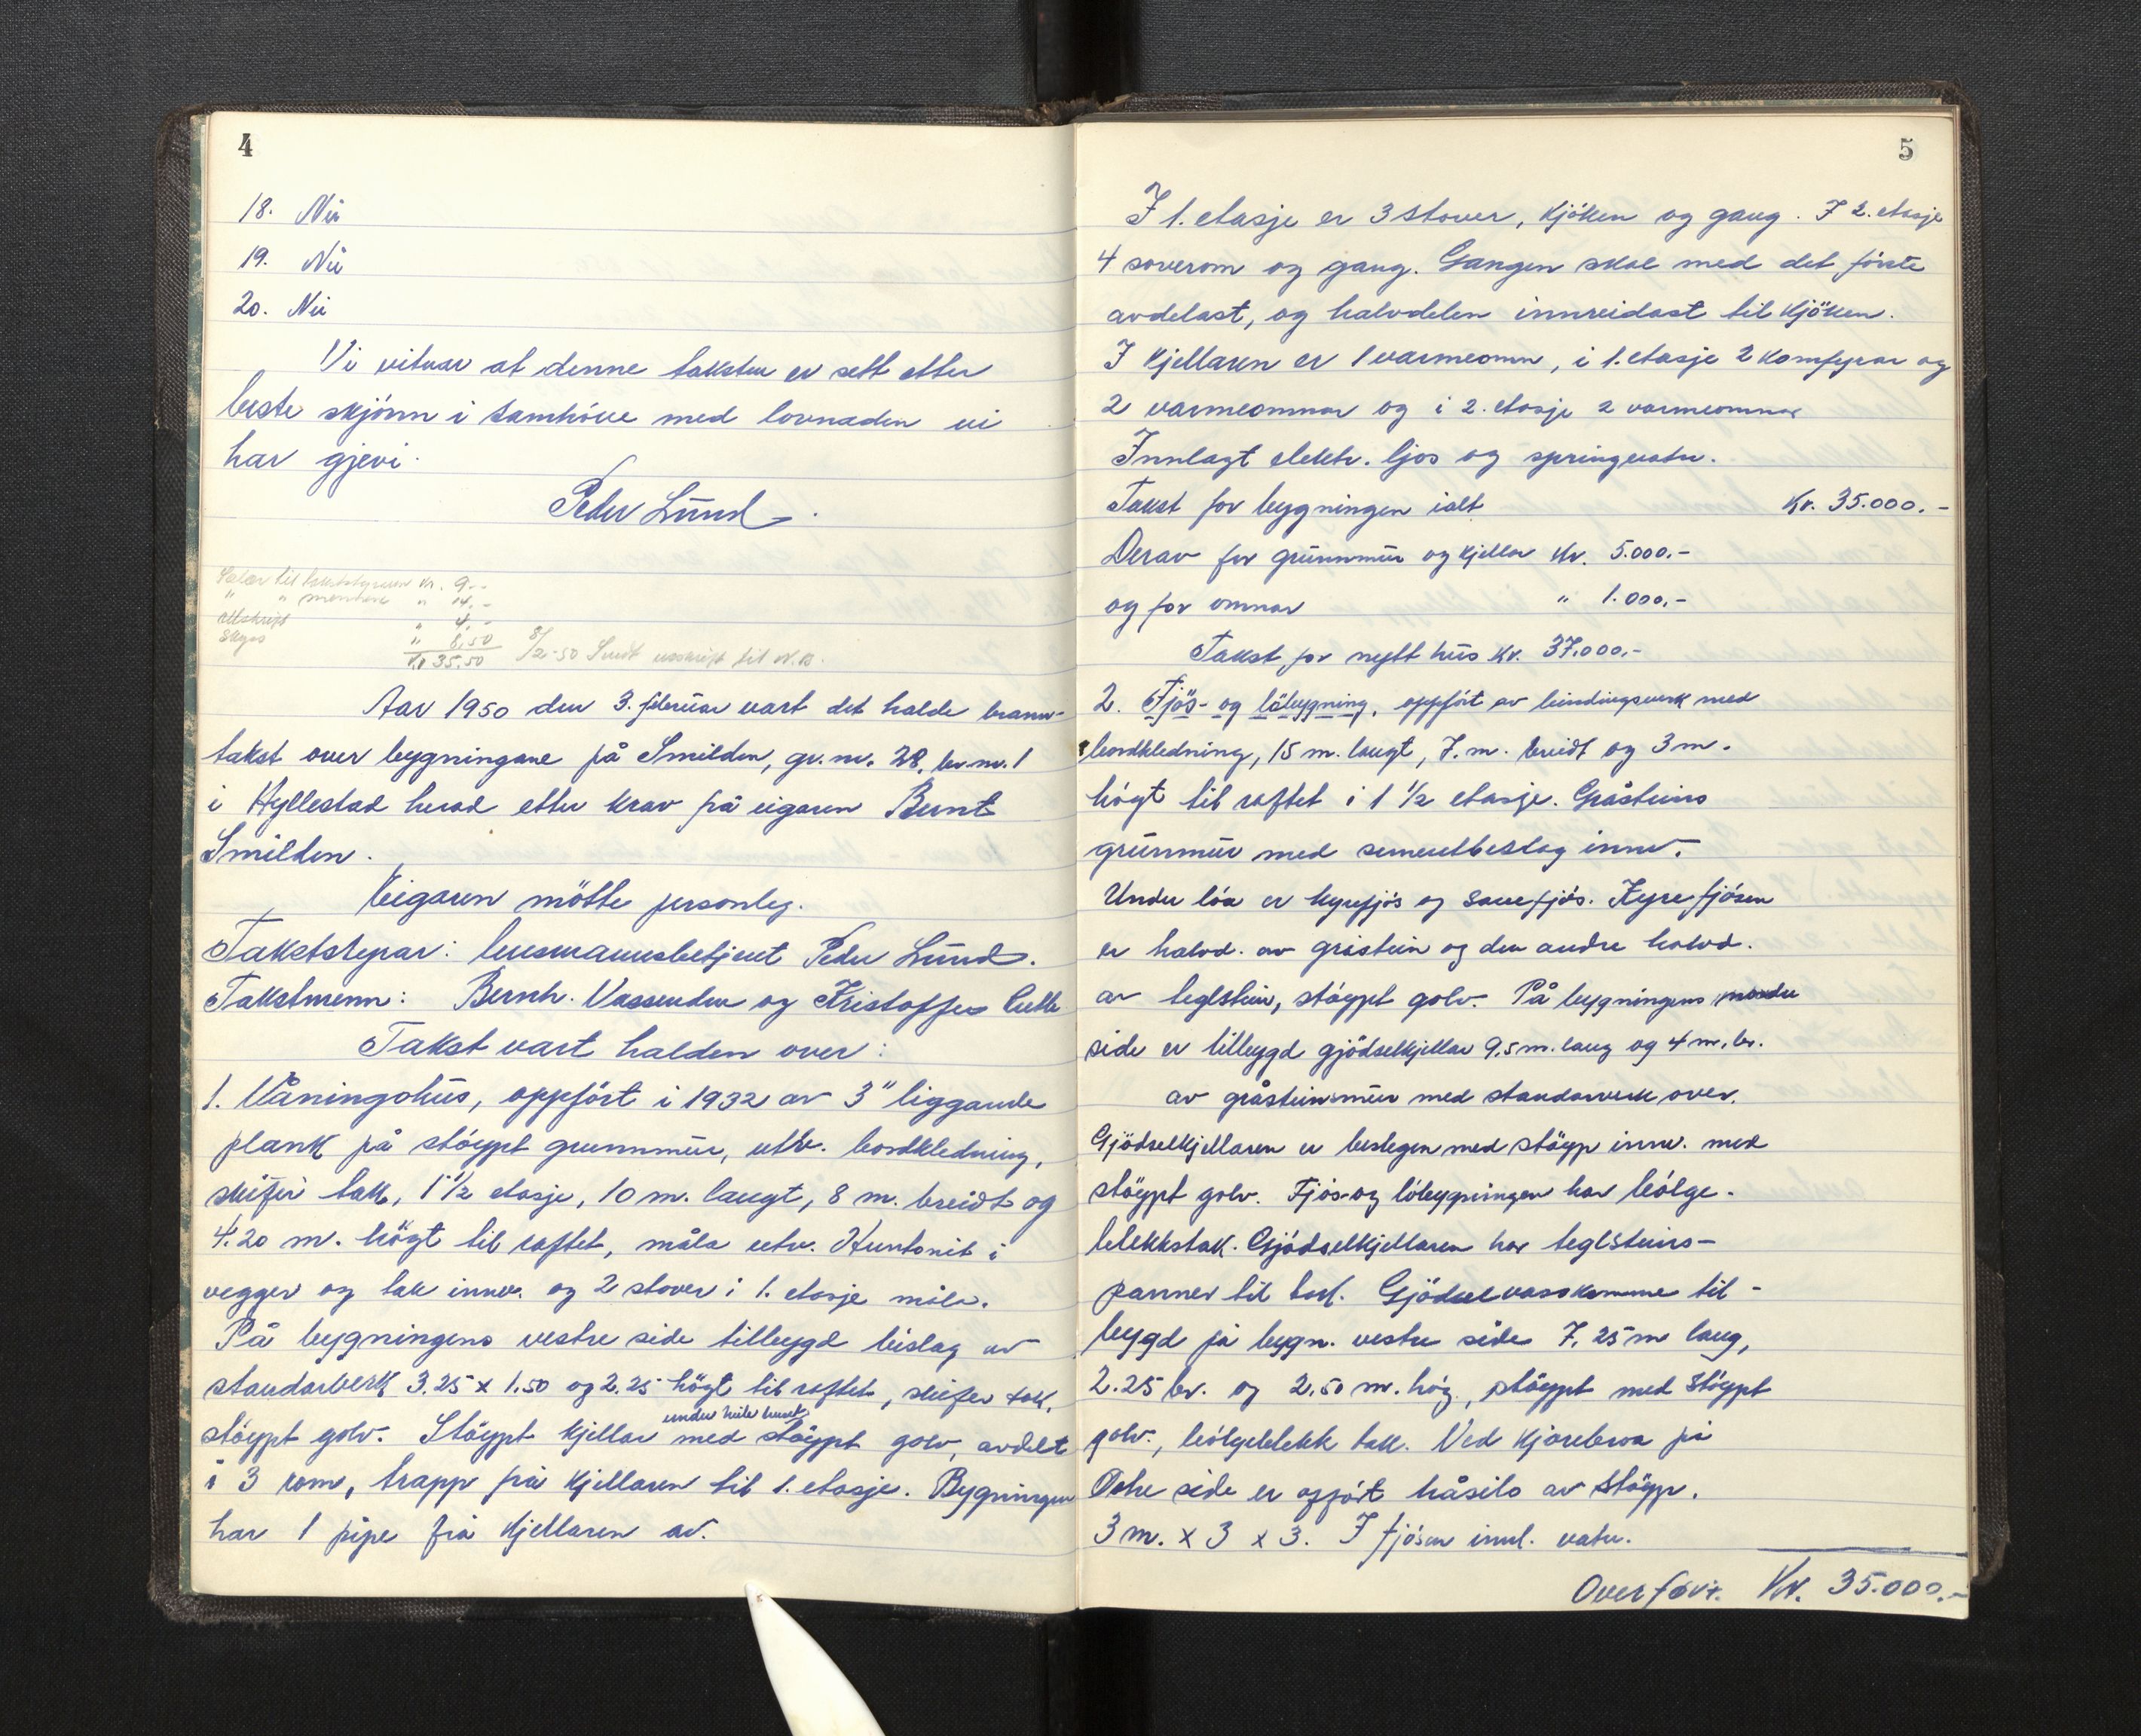 4
18. Nei
19. Nei
20. Nei
Vi vitnar at denne taksten er sett etter
beste skjönn i samhöve med lovnaden vi
har gjevi.
Peder Lund.
Salær til takststyraren kr. 9.-
" " mennene " 14.-
Utskrift " 4.-
Skyss " 8,50
Kr 35.50 8/2-50 Sendt utskrift til N.B.
Aar 1950 den 3. februar vart det halde brann-
takst over bygningane på Smilden, gr.nr. 28, br.nr. 1
i Hyllestad herad etter krav frå eigaren Bernt
Smilden.
Eigaren mötte personleg.
Takststyrar: lensmannsbetjent Peder Lund.
Takstmenn: Bernh. Vassenden og Kristoffer
Takst vart halden over:
1. Våningshus, oppfört i 1932 av 3" liggande
plank på stöypt grunnmur, utv. bordkledning,
skifer tak, 1 1/2 etasje, 10 m. langt, 8 m. breidt og
4.20 m. högt til raftet, måla utv. Huntonit i
vegger og tak innv. og 2 stover i 1. etasje måla.
På bygningens vestre side tilbygd bislag av
standarverk 3.25 x 1.50 og 2.25 högt til raftet, skifer tak,
stöypt golv. Stöypt kjellar under heile huset med stöypt golv, avdelt
i 3 rom, trapp frå kjellaren til 1. etasje. Bygningen
har 1 pipe frå kjellaren av.
5
I 1. etasje er 3 stover, kjöken og gang. I 2. etasje
4 soverom og gang. Gangen skal med det förste
avdelast, og halvdelen innreidast til kjöken.
I kjellaren er 1 varmeomn, i 1. etasje 2 komfyrar og
2 varmeomnar og i 2. etasje 2 varmeomnar
Innlagt elektr. ljos og springvatn.
Takst for bygningen ialt Kr. 35.000.-
Derav for grunnmur og kjellar Kr. 5.000.-
og for omnar " 1.000.-
Takst for nytt hus kr. 37.000.-
2. Fjös- og löbygning, oppfört av bindingsverk med
bordkledning, 15 m. langt, 7. m. breidt og 3 m.
högt til raftet i 1 1/2 etasje. Gråsteins
grunnmur med sementbeslag innv.
Under löa er kyrfjös og sauefjös. Kyrefjösen
er halvd. av gråstein og den andre halvd.
av teglstein, stöypt golv. På bygningens nordre
side er tilbygd gjödselkjellar 9.5 m. lang og 4 m. br.
av gråsteinsmur med standarverk over.
Gjödselkjellaren er beslegen med stöyp innv. med
stöypt golv. Fjös- og löbygningen har bölge-
blekkstak. Gjödselkjellaren har teglsteins-
panner til tak. Gjödselvasskumme til-
bygd på bygn. vestre side 7,25 m lang,
2.25 br. og 2,50 m. hög, stöypt med stöypt
golv, bölgeblekk tak. Ved kjörebroa på
Östre side er oppfört håsilo av stöyp.
3 m. x 3 x 3. I fjösen innl. vatn.
Overfört. Kr. 35.000.-